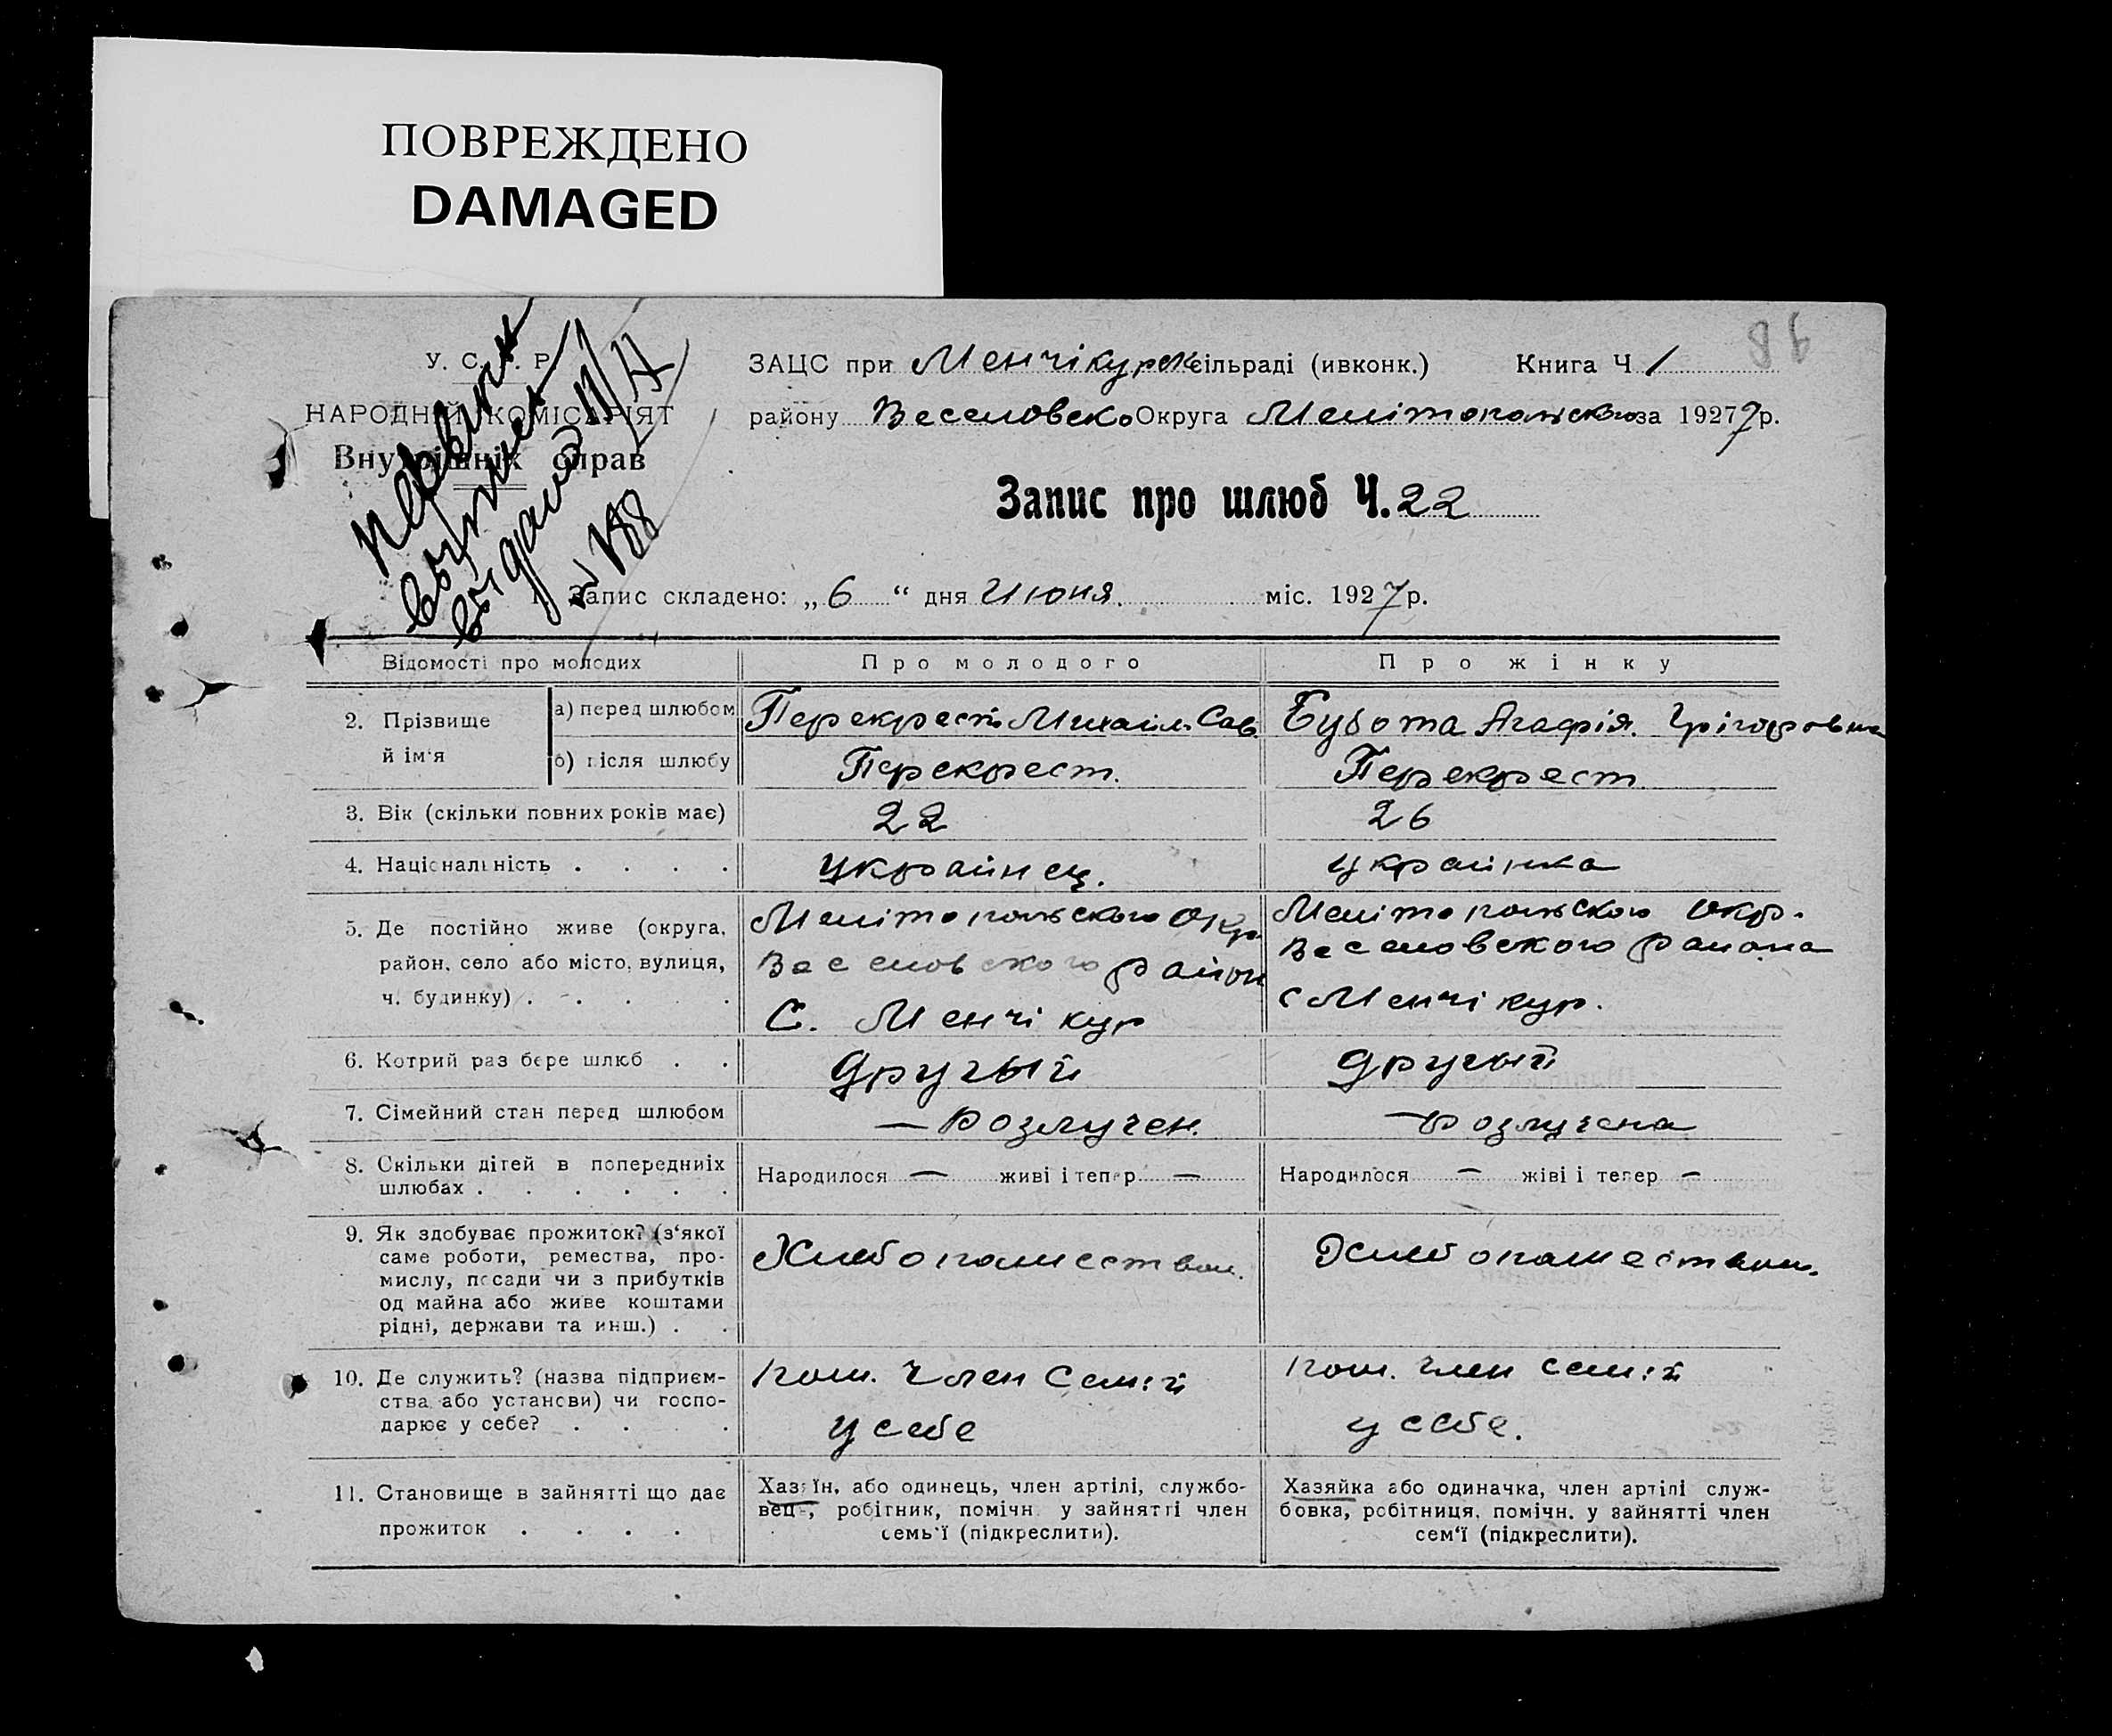 ПОВРЕЖДЕНО
DAMAGED
86
У. С. . Р.
НАРОДНІЙ КОМІСАРІЯТ
Внутрішніх справ
ЗАЦС при Менчікурск сільраді (ивконк.) Книга Ч 1
району Веселовско Округа Мелітопольского за 1927 7 р.
Запис про шлюб Ч. 22
Запис складено: „ 6 “ дня Июня. міс. 1927 р.
Відомості про молодих Про молодого Про жінку
2. Прізвище й ім‘я
а) перед шлюбом Перекрест Михаіл Сав. Бубота Агафія. Грігоровна
б) після шлюбу Перекрест. Перекрест
3. Вік (скільки повних років має) 22 26
4. Національність . . . . украинец. украінка
5. Де постійно живе (округа, район, село або місто, вулиця, ч. будинку) . . . . .
Мелітопольского Окр.
Веселовского район
С. Менчікур
Мелітопольского окр.
Веселовского района
с Менчікур.
6. Котрий раз бере шлюб . . другый другый
7. Сімейний стан перед шлюбом — Розлучен. — розлучена
8. Скільки дітей в попередниіх шлюбах . . . . . .
Народилося — живі і тепер —
Народилося — жіві і тепер —
9. Як здобуває прожиток? (з‘якої
саме роботи, ремества, про-
мислу, посади чи з прибутків
од майна або живе коштами
рідні, держави та инш.) . .
Хлебопашеством.
Хлебопашеством.
10. Де служить? (назва підприєм-
ства або установи) чи госпо-
дарює у себе? . . . .
пом. член Семій
у себе
пом. член семій
у себе.
11. Становище в зайнятті що дає
прожиток . . . .
Хазяїн, або одинець, член артілі, службо-
вець, робітник, помічн. у зайнятті член
семь‘ї (підкреслити).
Хазяйка або одиначка, член артілі служ-
бовка, робітниця, помічн. у зайнятті член
сем‘ї (підкреслити).